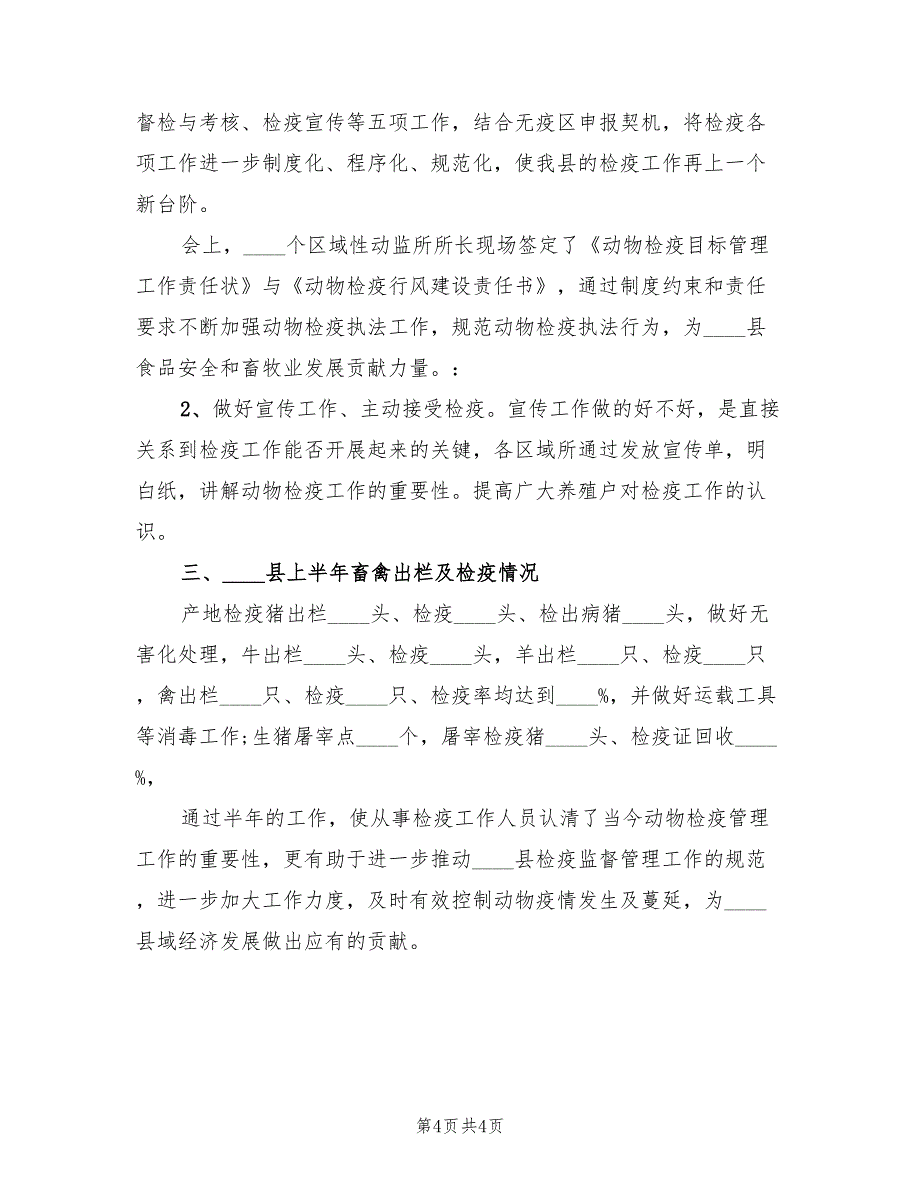 督检与考核、检疫宣传等五项工作，结合无疫区申报契机，将检疫各
项工作进一步制度化、程序化、规范化，使我县的检疫工作再上一个
新台阶。
会上，____个区域性动监所所长现场签定了《动物检疫目标管理
工作责任状》与《动物检疫行风建设责任书》，通过制度约束和责任
要求不断加强动物检疫执法工作，规范动物检疫执法行为，为____县
食品安全和畜牧业发展贡献力量。：
2、做好宣传工作、主动接受检疫。宣传工作做的好不好，是直接
关系到检疫工作能否开展起来的关键，各区域所通过发放宣传单，明
白纸，讲解动物检疫工作的重要性。提高广大养殖户对检疫工作的认
识。
三、____县上半年畜禽出栏及检疫情况
产地检疫猪出栏____头、检疫____头、检出病猪____头，做好无
害化处理，牛出栏____头、检疫____头，羊出栏____只、检疫____只
，禽出栏____只、检疫____只、检疫率均达到____%，并做好运载工具
等消毒工作;生猪屠宰点____个，屠宰检疫猪____头、检疫证回收____
%，
通过半年的工作，使从事检疫工作人员认清了当今动物检疫管理
工作的重要性，更有助于进一步推动____县检疫监督管理工作的规范
，进一步加大工作力度，及时有效控制动物疫情发生及蔓延，为____
县域经济发展做出应有的贡献。
第4页共4页